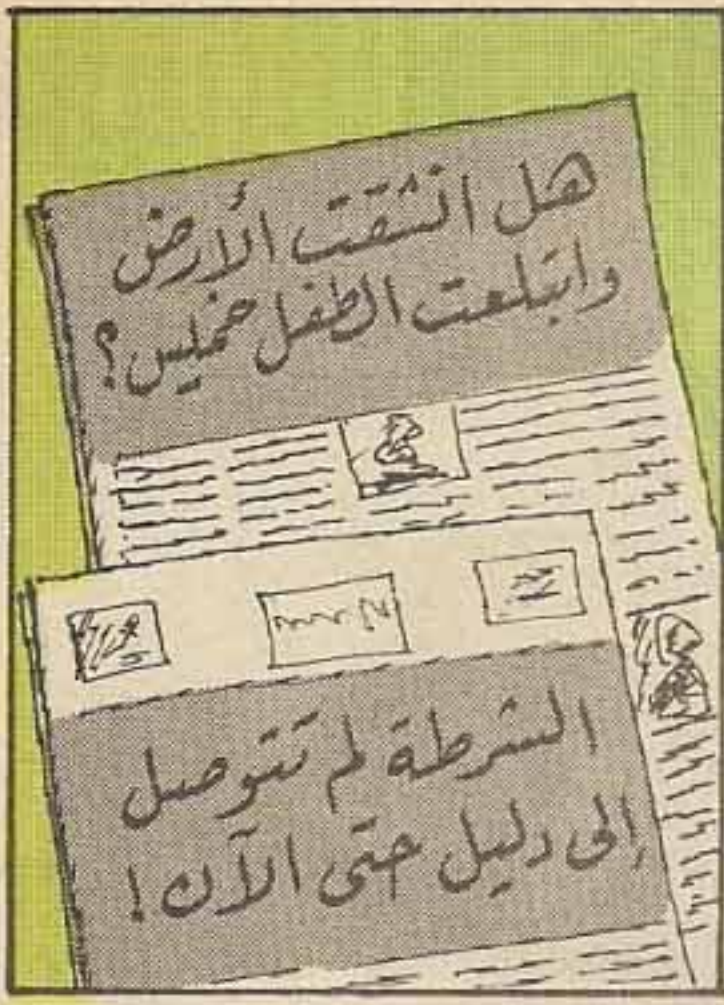 هل انشقت الأرض
وابتلعت الطفل خميس؟
الشرطة لم تتوصل
إلى دليل حتى الآن!